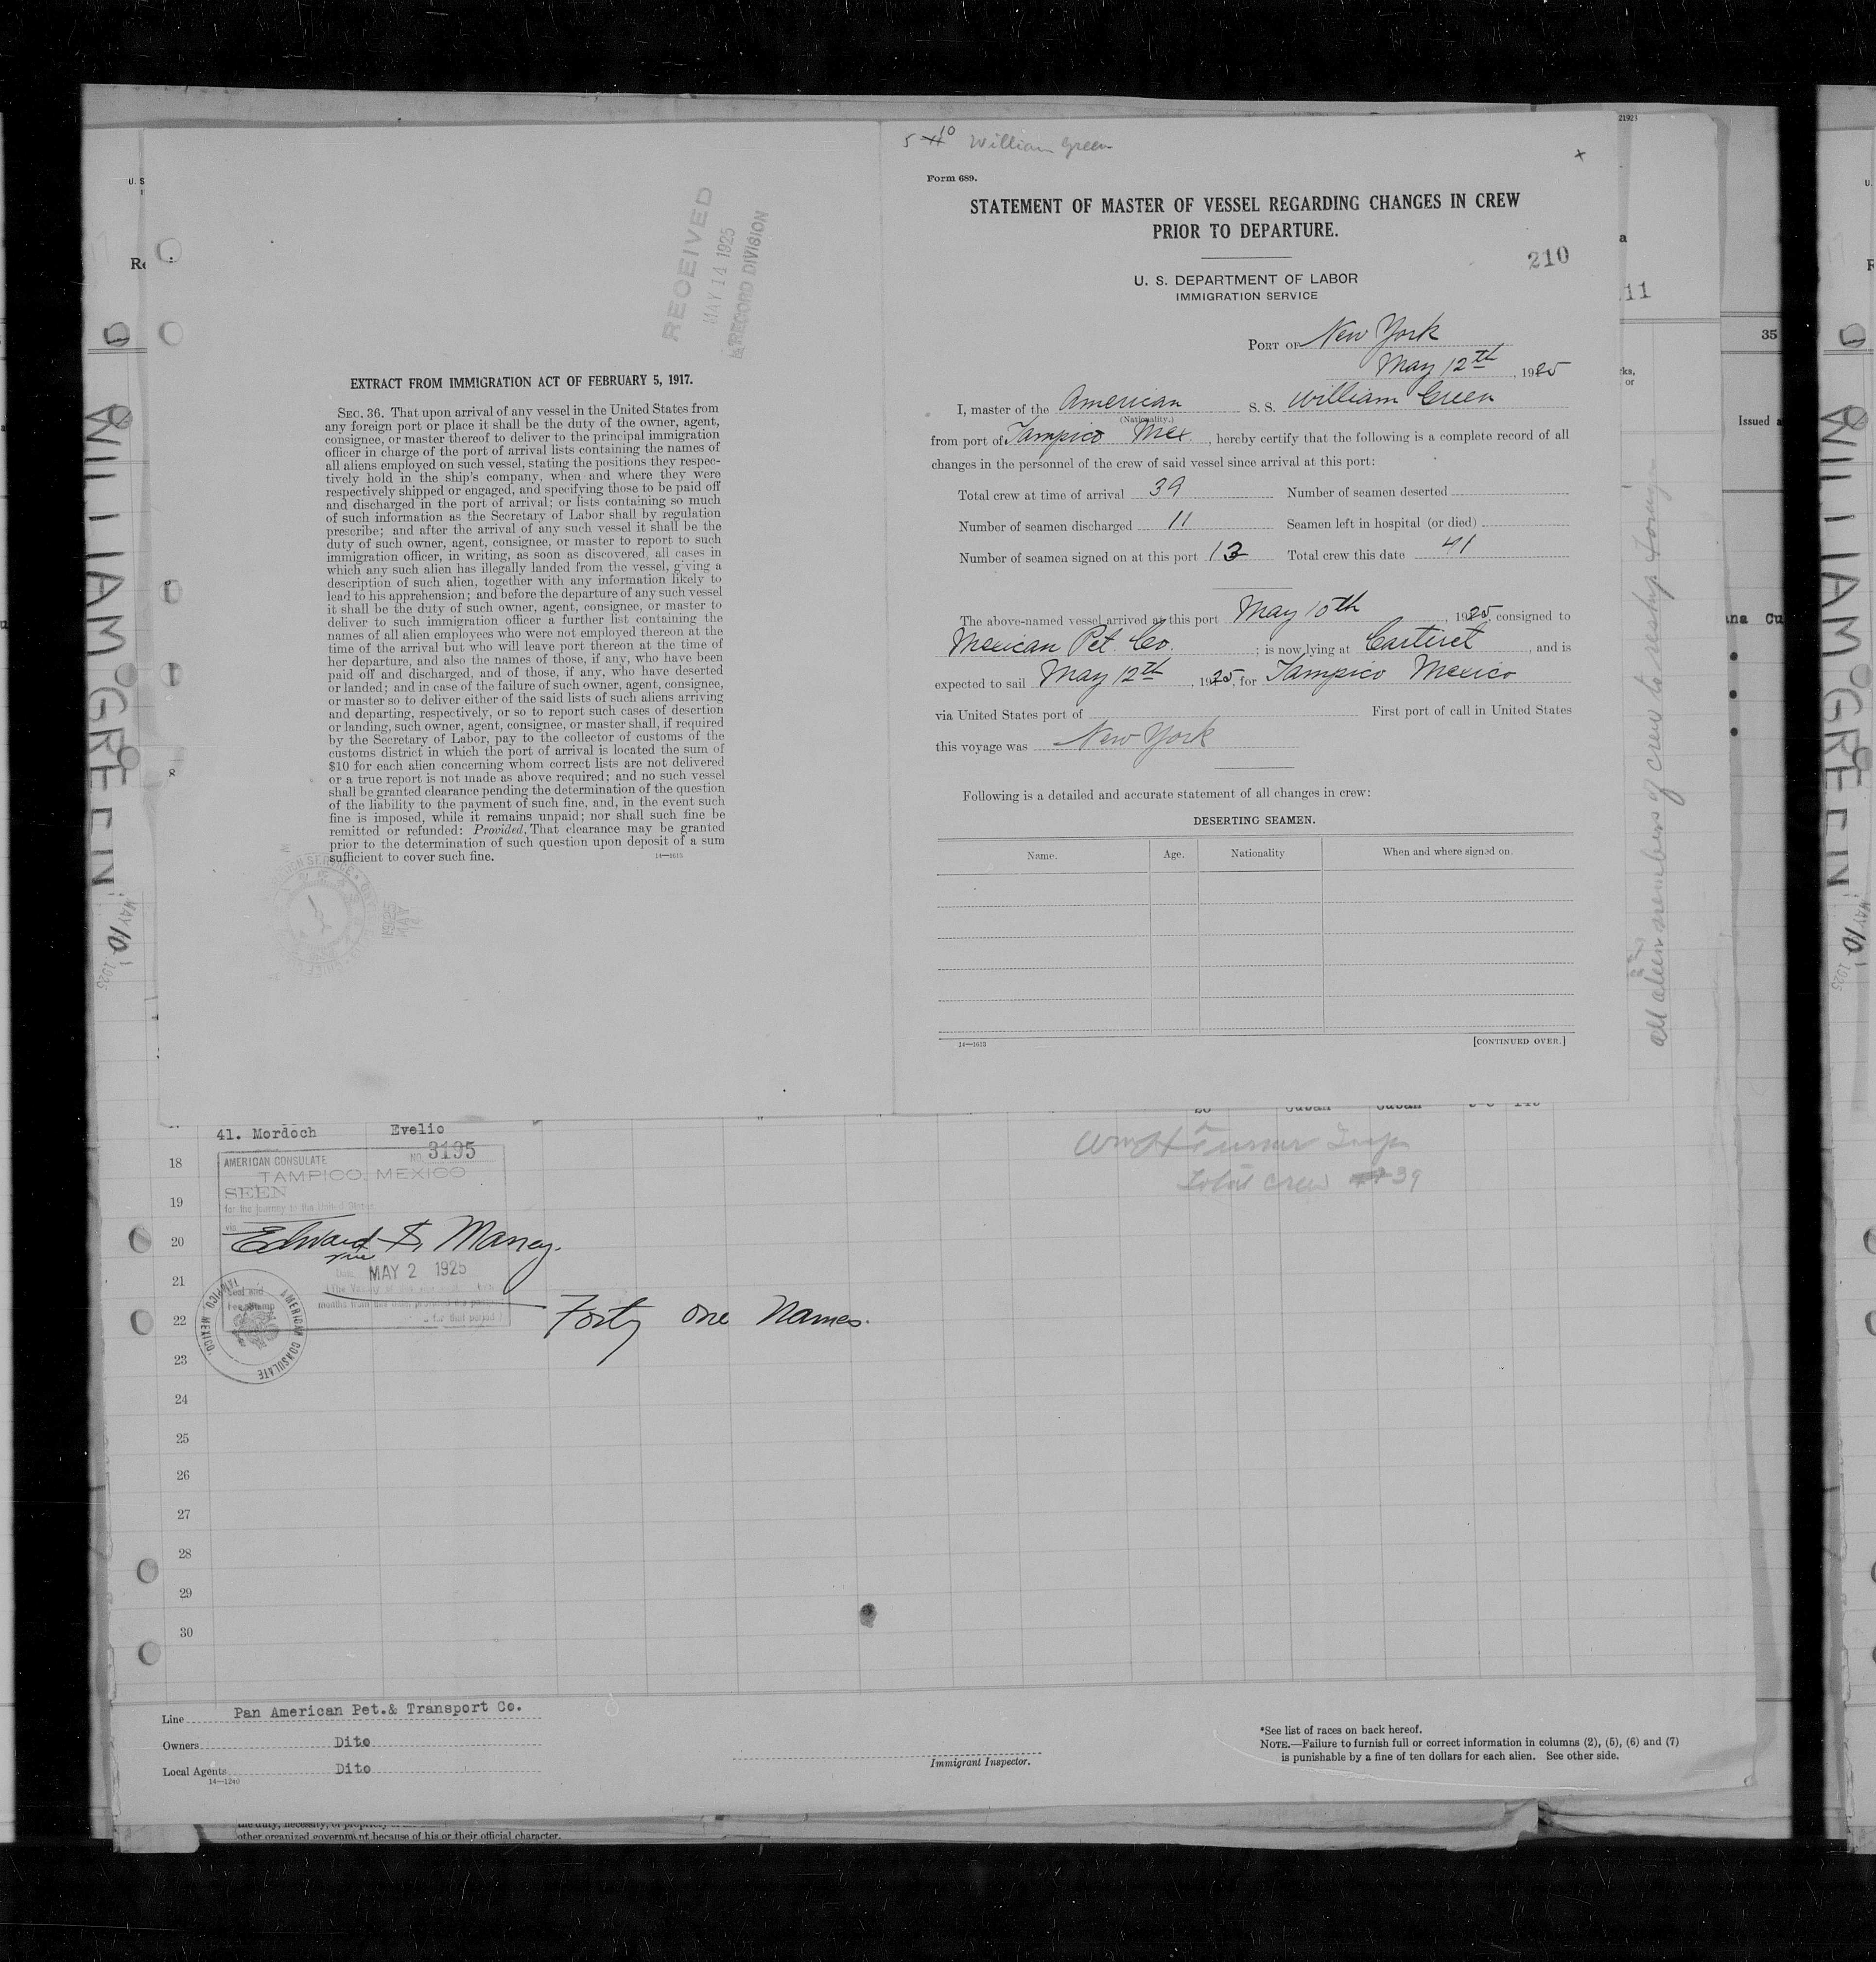 5 10 William Green
Form 689.
STATEMENT OF MASTER OF VESSEL REGARDING CHANGES IN CREW
PRIOR TO DEPARTURE.
210
U. S. DEPARTMENT OF LABOR
IMMIGRATION SERVICE
PORT OF New York
May 12th, 1925
I, master of the American S. S. William Green
(Nationality.)
from port of Tampico Mex, hereby certify that the following is a complete record of all
changes in the personnel of the crew of said vessel since arrival at this port:
Total crew at time of arrival 39 Number of seamen deserted
Number of seamen discharged 11 Seamen left in hospital (or died)
Number of seamen signed on at this port 13 Total crew this date 41
The above-named vessel arrived at this port May 10th, 1925, consigned to
Mexican Pet. Co.; is now lying at Carteret, and is
expected to sail May 12th, 1925, for Tampico Mexico
via United States port of First port of call in United States
this voyage was New York
Following is a detailed and accurate statement of all changes in crew:
DESERTING SEAMEN.
Name. Age. Nationality When and where signed on.
14—1613 [CONTINUED OVER.]
RECEIVED
MAY 14 1925
RECORD DIVISION
EXTRACT FROM IMMIGRATION ACT OF FEBRUARY 5, 1917.
SEC. 36. That upon arrival of any vessel in the United States from
any foreign port or place it shall be the duty of the owner, agent,
consignee, or master thereof to deliver to the principal immigration
officer in charge of the port of arrival lists containing the names of
all aliens employed on such vessel, stating the positions they respec-
tively hold in the ship's company, when and where they were
respectively shipped or engaged, and specifying those to be paid off
and discharged in the port of arrival; or lists containing so much
of such information as the Secretary of Labor shall by regulation
prescribe; and after the arrival of any such vessel it shall be the
duty of such owner, agent, consignee, or master to report to such
immigration officer, in writing, as soon as discovered, all cases in
which any such alien has illegally landed from the vessel, giving a
description of such alien, together with any information likely to
lead to his apprehension; and before the departure of any such vessel
it shall be the duty of such owner, agent, consignee, or master to
deliver to such immigration officer a further list containing the
names of all alien employees who were not employed thereon at the
time of the arrival but who will leave port thereon at the time of
her departure, and also the names of those, if any, who have been
paid off and discharged, and of those, if any, who have deserted
or landed; and in case of the failure of such owner, agent, consignee,
or master so to deliver either of the said lists of such aliens arriving
and departing, respectively, or so to report such cases of desertion
or landing, such owner, agent, consignee, or master shall, if required
by the Secretary of Labor, pay to the collector of customs of the
customs district in which the port of arrival is located the sum of
$10 for each alien concerning whom correct lists are not delivered
or a true report is not made as above required; and no such vessel
shall be granted clearance pending the determination of the question
of the liability to the payment of such fine, and, in the event such
fine is imposed, while it remains unpaid; nor shall such fine be
remitted or refunded: Provided, That clearance may be granted
prior to the determination of such question upon deposit of a sum
sufficient to cover such fine. 14—1613
WILLIAM GREEN
MAY 10 1925
all alien members of crew to reship foreign
35
Issued
41. Mordoch Evelio
AMERICAN CONSULATE NO. 3195
TAMPICO, MEXICO
SEEN
for the journey to the United States
via
Edward S. Maney.
Date MAY 2 1925
AMERICAN CONSULATE
TAMPICO, MEXICO.
Forty one Names.
Wm H Turner Insp
Total crew 39
18
19
20
21
22
23
24
25
26
27
28
29
30
Line Pan American Pet.& Transport Co.
Owners Dito
Local Agents Dito
14—1240
Immigrant Inspector.
*See list of races on back hereof.
NOTE.—Failure to furnish full or correct information in columns (2), (5), (6) and (7)
is punishable by a fine of ten dollars for each alien. See other side.
other organized government because of his or their official character.
WILLIAM GREEN
MAY 10 1925